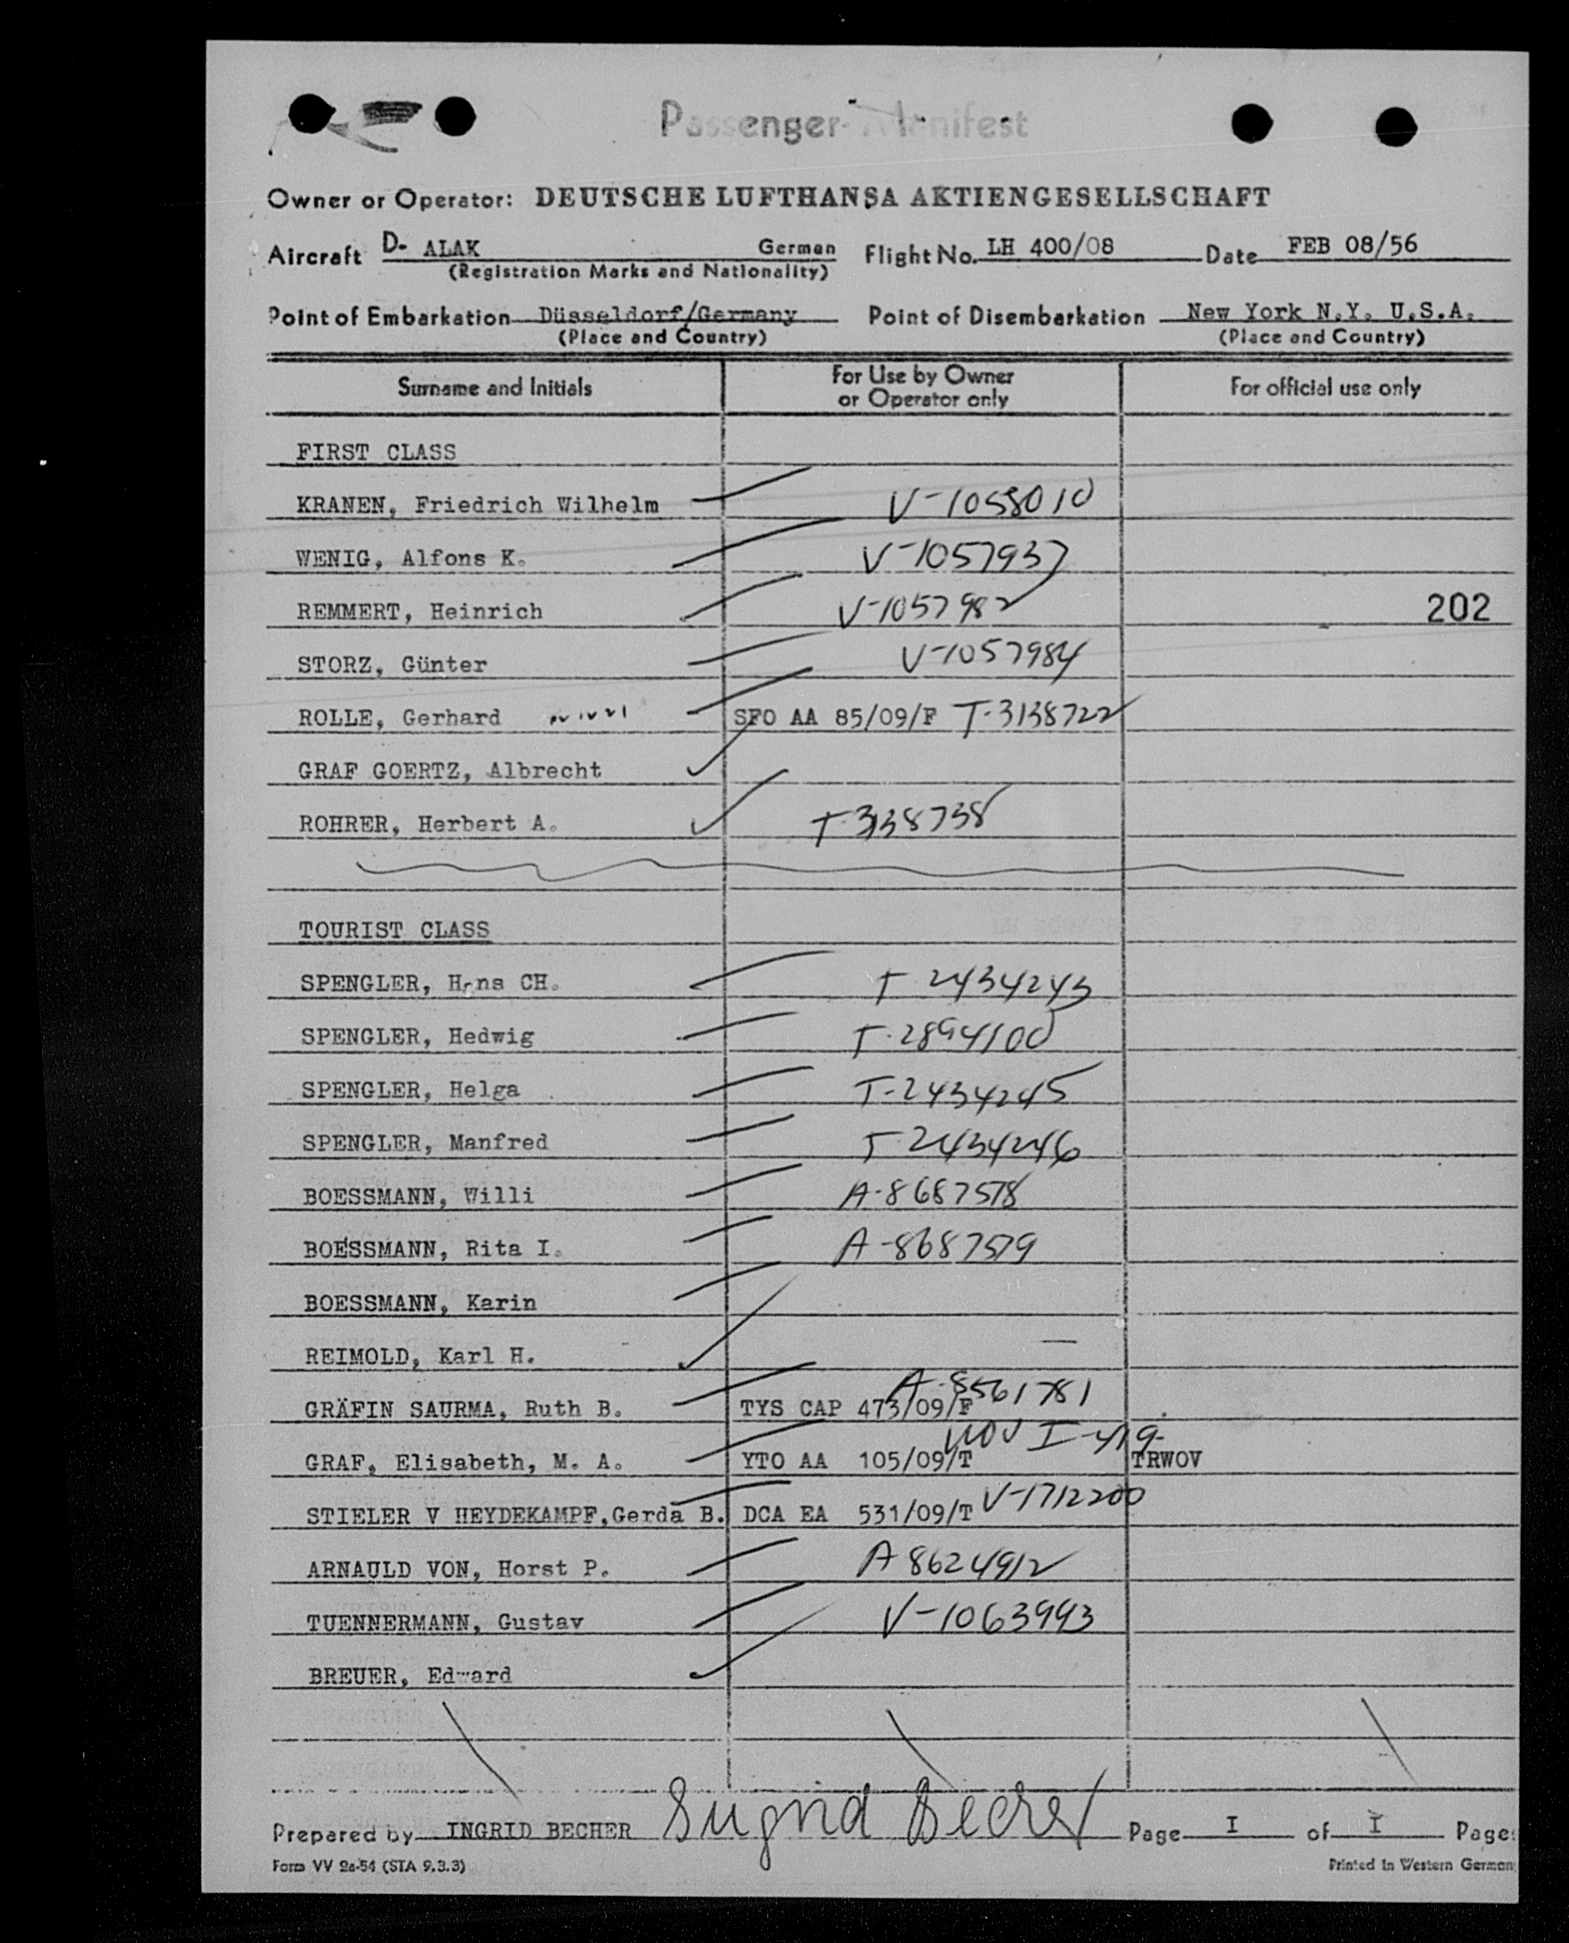 Passenger-Manifest
Owner or Operator: DEUTSCHE LUFTHANSA AKTIENGESELLSCHAFT
Aircraft D- ALAK German Flight No. LH 400/08 Date FEB 08/56
(Registration Marks and Nationality)
Point of Embarkation Düsseldorf/Germany Point of Disembarkation New York N.Y. U.S.A.
(Place and Country) (Place and Country)
Surname and Initials For Use by Owner or Operator only For official use only
FIRST CLASS
KRANEN, Friedrich Wilhelm V-1058010
WENIG, Alfons K. V-1057937
REMMERT, Heinrich V-1057982 202
STORZ, Günter V-1057984
ROLLE, Gerhard SFO AA 85/09/F T-3138722
GRAF GOERTZ, Albrecht
ROHRER, Herbert A. T-3138738
TOURIST CLASS
SPENGLER, Hans CH. T-2434243
SPENGLER, Hedwig T-2894100
SPENGLER, Helga T-2434245
SPENGLER, Manfred T-2434246
BOESSMANN, Willi A-8687578
BOESSMANN, Rita I. A-8687579
BOESSMANN, Karin
REIMOLD, Karl H. —
GRÄFIN SAURMA, Ruth B. TYS CAP 473/09/F A-8561781
GRAF, Elisabeth, M. A. YTO AA 105/09/T WOV I-419 TRWOV
STIELER V HEYDEKAMPF, Gerda B. DCA EA 531/09/T V-1712200
ARNAULD VON, Horst P. A-8624912
TUENNERMANN, Gustav V-1063993
BREUER, Edward
Prepared by INGRID BECHER Ingrid Becher Page I of I Page
Form VV 2a-54 (STA 9.3.3) Printed in Western German